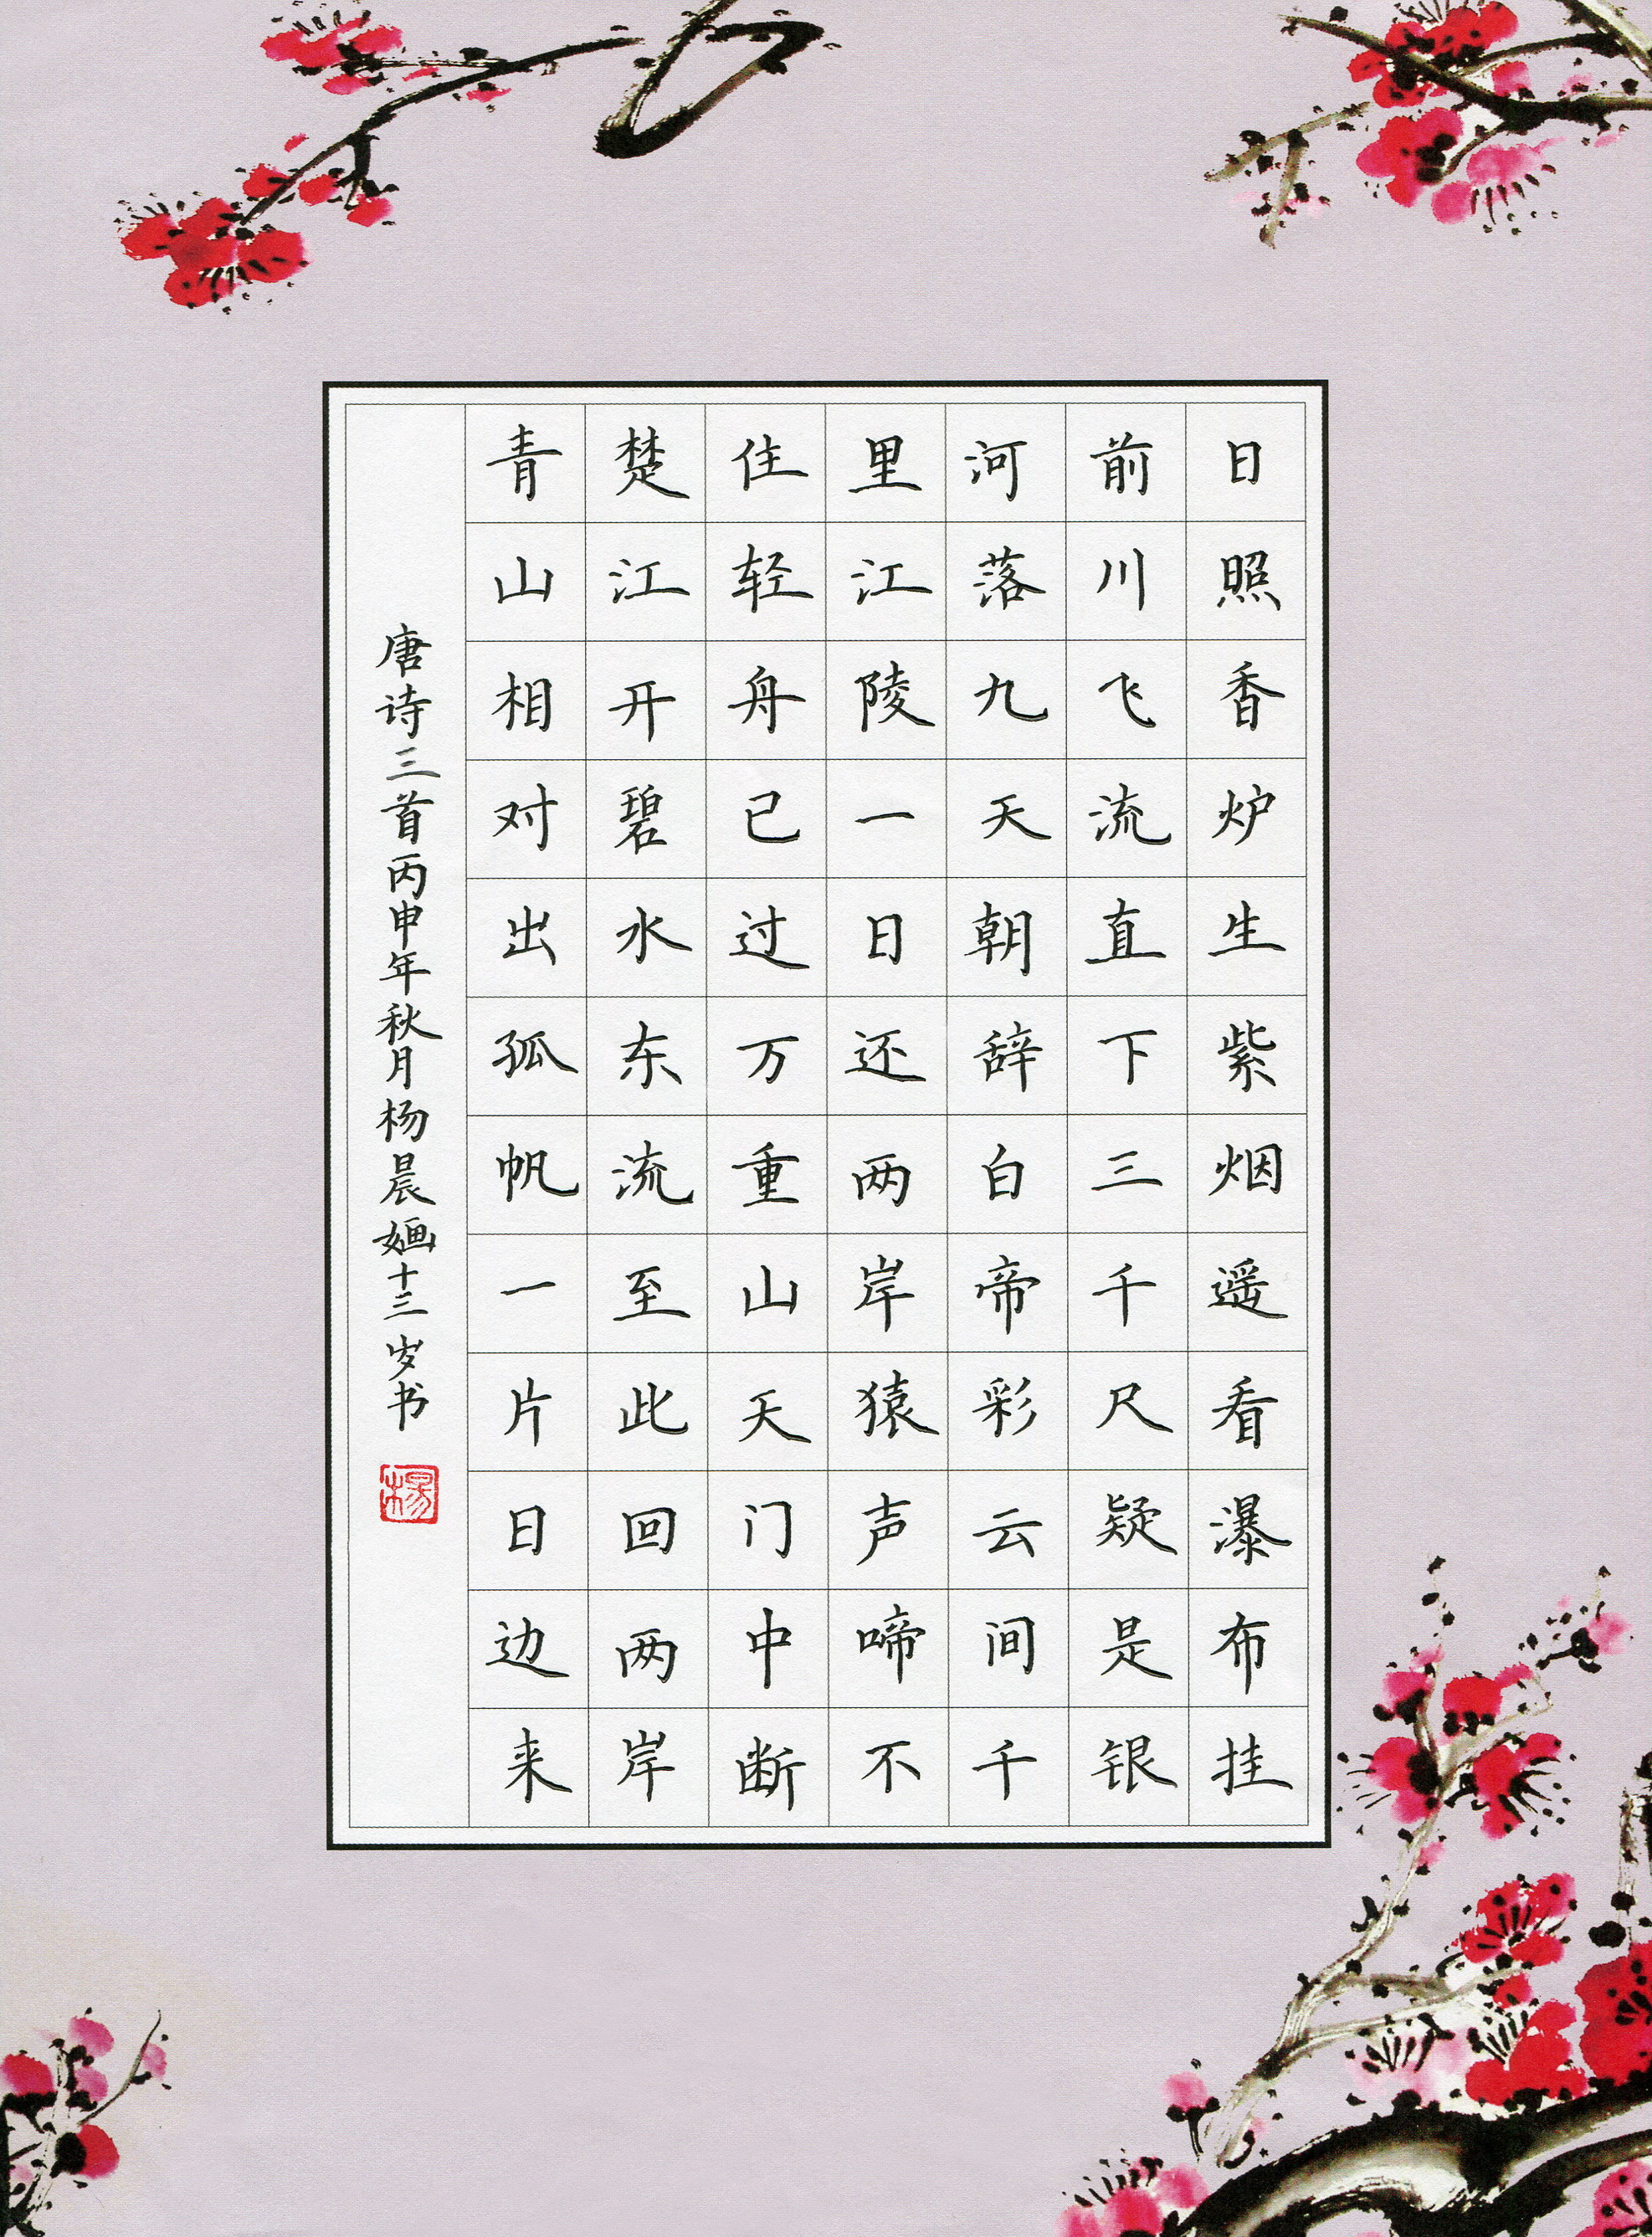 日照香炉生紫烟遥看瀑布挂
前川飞流直下三千尺疑是银
河落九天朝辞白帝彩云间千
里江陵一日还两岸猿声啼不
住轻舟已过万重山天门中断
楚江开碧水东流至此回两岸
青山相对出孤帆一片日边来
唐诗三首丙申年秋月杨晨婳十三岁书
楊